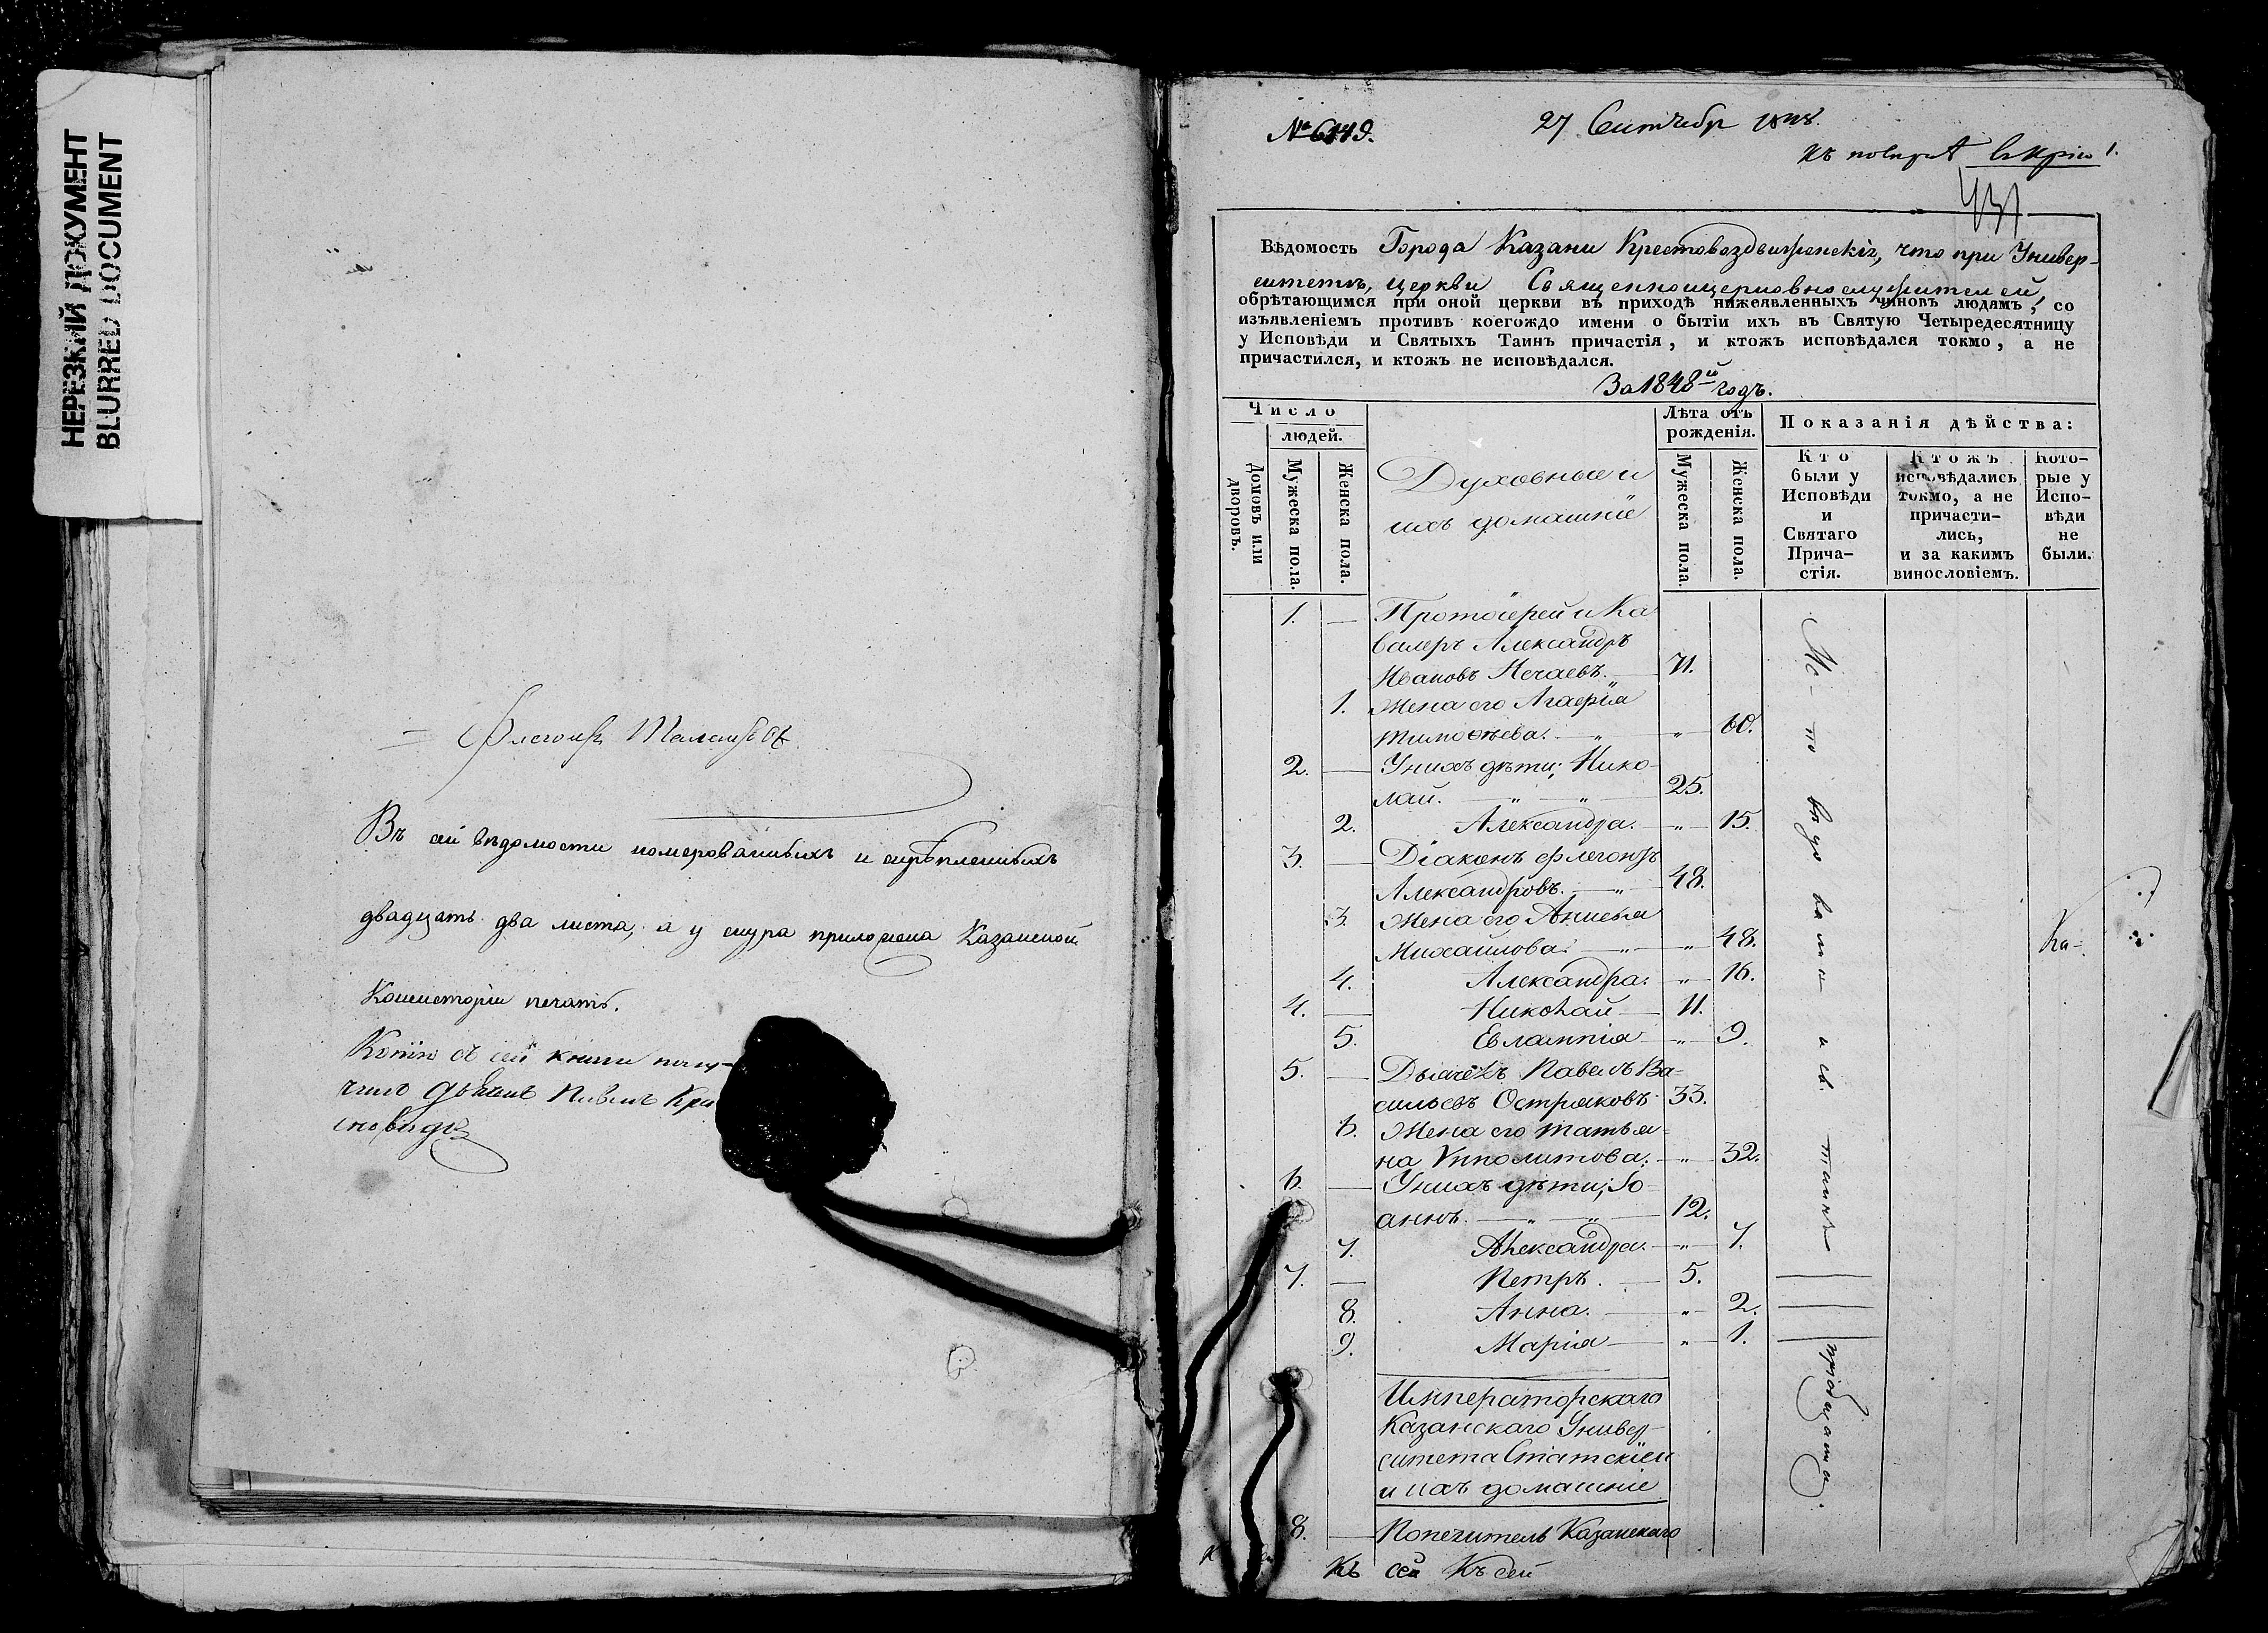 НЕРЕЗКИЙ ДОКУМЕНТ
BLURRED DOCUMENT
Въ сей вѣдомости номерованныхъ и скрѣпленныхъ
двадцать два листа, а у снура приложена Казанской
Консисторіи печать.
Копію съ сей книги полу-
чилъ Павелъ
№ 6149.
27 Сентября 1848.
Къ
431
Вѣдомость Города Казани Крестовоздвиженскія, что при Универ-
ситетѣ, церкви Священноцерковнослужителей,
обрѣтающимся при оной церкви въ приходѣ нижеявленныхъ чиновъ людямъ, со
изъявленіемъ противъ коегождо имени о бытіи ихъ въ Святую Четыредесятницу
у Исповѣди и Святыхъ Таинъ причастія, и ктожъ исповѣдался токмо, а не
причастился, и ктожъ не исповѣдался.
За 1848й годъ.
Число
людей.
Домовъ или дворовъ.
Мужеска пола.
Женска пола.
Духовные и
ихъ домашніе
Лѣта отъ
рожденія.
Мужеска пола.
Женска пола.
Показанія дѣйства:
Кто
были у
Исповѣди
и
Святаго
Прича-
стія.
Ктожъ
исповѣдались
токмо, а не
причасти-
лись,
и за какимъ
винословіемъ.
Кото-
рые у
Испо-
вѣди
не
были.
1. — Протоіерей и Ка
валеръ Александръ
Ивановъ Нечаевъ. 71.
1. Жена его Агафія
Тимофѣева. — „ — „ 60.
2. — У нихъ дѣти; Нико-
лай. — „ — „ — 25.
2. Александра. — „ — 15.
3. — Діаконъ Флегонтъ
Александровъ. — „ — 48.
3. Жена его Анисья
Михайлова. — „ — „ 48.
4. Александра. „ 16.
4. — Николай — 11.
5. Евлампія — „ 9.
5. — Дьячекъ Павелъ Ва-
сильевъ Остряковъ 33.
6. Жена его Татья-
на Ипполитова. — „ — 32.
6. — У нихъ дѣти; Іо-
аннъ. — „ — „ — 12.
7. Александра. — „ — 7.
7. — Петръ. — 5.
8. Анна. — „ — 2.
9. Марія — „ — 1.
Императорскаго
Казанскаго Универ-
ситета Статскіе
и ихъ домашніе
8. — Попечитель Казанскаго
Къ сей Къ сей